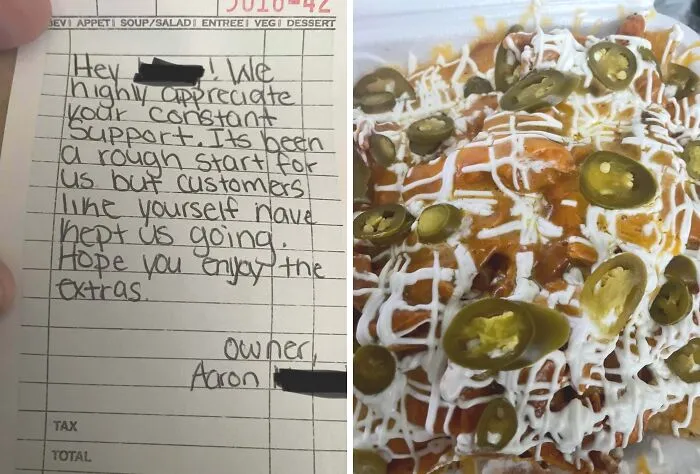 5010-42
BEV APPET SOUP/SALAD ENTREE VEG DESSERT
Hey ! We
highly appreciate
your constant
Support. Its been
a rough start for
us but customers
like yourself have
kept us going.
Hope you enjoy the
extras.
owner,
Aaron
TAX
TOTAL